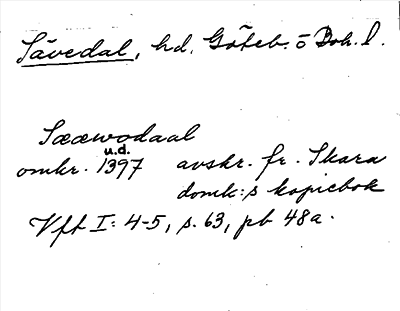 Sävedal, hd, Göteb. o Boh. l.
Sææwodaal
u.d.
omkr. 1397 avskr. fr. Skara
domk:s kopiebok
Vft I: 4-5, s. 63, pb 48a.